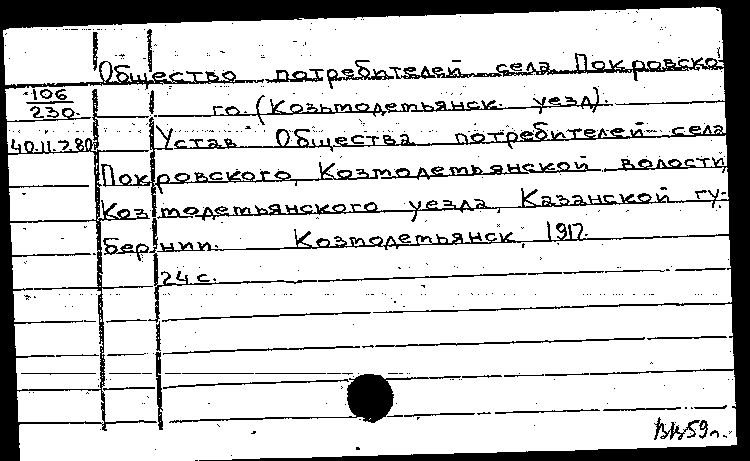 Общество потребителей села Покровско-
106
230.
го. (Козьмодемьянск. уезд).
40.11.280
Устав Общества потребителей села
Покровского, Козмодемьянской волости,
Козмодемьянского уезда, Казанской гу-
бернии. Козмодемьянск, 1917.
24 с.